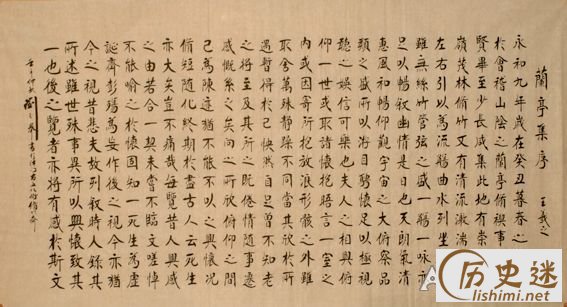 蘭亭集序 王羲之
永和九年歲在癸丑暮春之
於會稽山陰之蘭亭脩稧事
賢畢至少長咸集此地有崇
嶺茂林脩竹又有清流激湍
左右引以為流觴曲水列坐
雖無絲竹管弦之盛一觴一詠
足以暢敘幽情是日也天朗氣清
惠風和暢仰觀宇宙之大俯察品
類之盛所以遊目騁懷足以極視
聽之娛信可樂也夫人之相與俯
仰一世或取諸懷抱晤言一室之
內或因寄所托放浪形骸之外雖
取舍萬殊靜躁不同當其欣於所
遇暫得於己快然自足曾不知老
之將至及其所之既倦情隨事遷
感慨係之矣向之所欣俛仰之間
已為陳迹猶不能不以之興懷況
脩短隨化終期於盡古人云死生
亦大矣豈不痛哉每覽昔人興感
之由若合一契未嘗不臨文嗟悼
不能喻之於懷固知一死生為虛
誕齊彭殤為妄作後之視今亦猶
今之視昔悲夫故列敘時人錄其
所述雖世殊事異所以興懷致其
一也後之覽者亦將有感於斯文
历史迷
lishimi.net